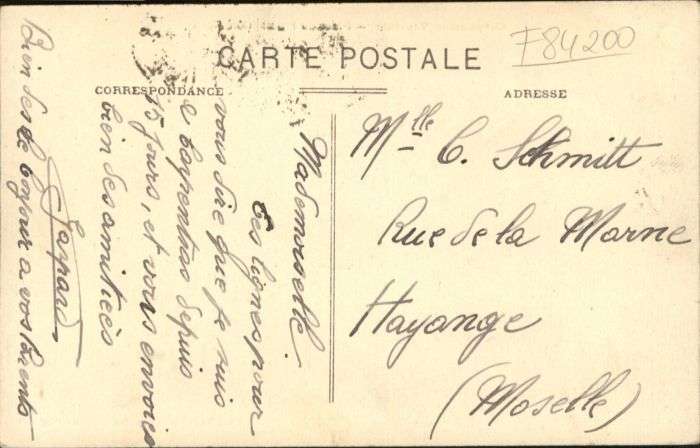 CARTE POSTALE
F84200
CORRESPONDANCE
ADRESSE
Mademoiselle
Ces lignes pour
vous dire que je suis
a Carpentras depuis
15 jours, et vous envoies
bien des amitiées
Gaspard
Bien des de bojour a vos parents
Mlle C. Schmitt
Rue de la Marne
Hayange
(Moselle)